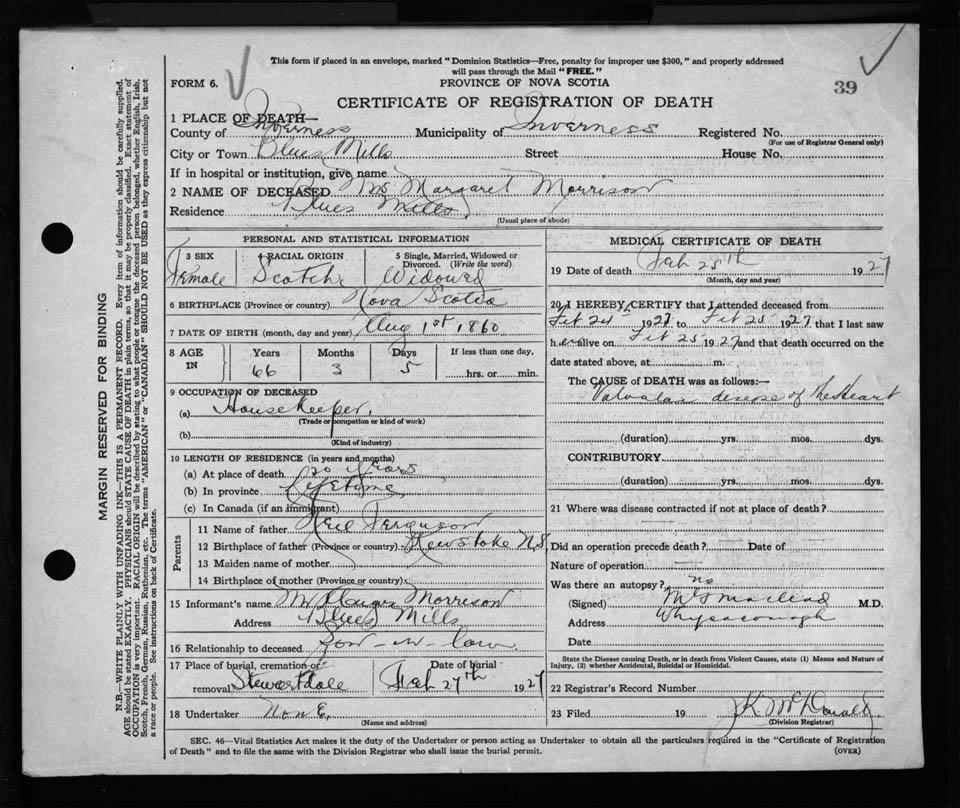 This form if placed in an envelope, marked "Dominion Statistics—Free, penalty for improper use $300," and properly addressed
will pass through the Mail "FREE."
FORM 6.
PROVINCE OF NOVA SCOTIA
39
CERTIFICATE OF REGISTRATION OF DEATH
1 PLACE OF DEATH—
County of Inverness Municipality of Inverness Registered No.
(For use of Registrar General only)
City or Town Blues Mills Street House No.
If in hospital or institution, give name
2 NAME OF DECEASED Mrs Margaret Morrison
Residence Blues Mills
(Usual place of abode)
PERSONAL AND STATISTICAL INFORMATION
3 SEX
Female
4 RACIAL ORIGIN
Scotch
5 Single, Married, Widowed or
Divorced. (Write the word)
Widowed
6 BIRTHPLACE (Province or country) Nova Scotia
7 DATE OF BIRTH (month, day and year) Aug 1st 1860
8 AGE
IN
Years
66
Months
3
Days
5
If less than one day,
hrs. or min.
9 OCCUPATION OF DECEASED
(a) Housekeeper.
(Trade or occupation or kind of work)
(b)
(Kind of industry)
10 LENGTH OF RESIDENCE (in years and months)
(a) At place of death 20 years
(b) In province lifetime
(c) In Canada (if an immigrant)
Parents
11 Name of father Neil Ferguson
12 Birthplace of father (Province or country) N.S.
13 Maiden name of mother
14 Birthplace of mother (Province or country)
15 Informant's name Morrison
Address Blues Mills
16 Relationship to deceased Son-in-law
17 Place of burial, cremation or
removal Stewartdale
Date of burial
Feb 27th 1927
18 Undertaker None.
(Name and address)
MEDICAL CERTIFICATE OF DEATH
19 Date of death Feb 25th 1927
(Month, day and year)
20 I HEREBY CERTIFY that I attended deceased from
Feb 24th 1927 to Feb 25 1927 that I last saw
her alive on Feb 25 1927 and that death occurred on the
date stated above, at m.
The CAUSE of DEATH was as follows:—
Valvular disease of the Heart
(duration) yrs. mos. dys.
CONTRIBUTORY
(duration) yrs. mos. dys.
21 Where was disease contracted if not at place of death?
Did an operation precede death? Date of
Nature of operation
Was there an autopsy? no
(Signed) Macleod M.D.
Address Whycocomagh
Date
State the Disease causing Death, or in death from Violent Causes, state (1) Means and Nature of
Injury, (2) whether Accidental, Suicidal or Homicidal.
22 Registrar's Record Number
23 Filed 19 J K McDonald
(Division Registrar)
SEC. 46—Vital Statistics Act makes it the duty of the Undertaker or person acting as Undertaker to obtain all the particulars required in the "Certificate of Registration
of Death" and to file the same with the Division Registrar who shall issue the burial permit. (OVER)
MARGIN RESERVED FOR BINDING
N.B.—WRITE PLAINLY WITH UNFADING INK—THIS IS A PERMANENT RECORD. Every item of information should be carefully supplied.
AGE should be stated EXACTLY. PHYSICIANS should STATE CAUSE OF DEATH in plain terms, so that it may be properly classified. Exact statement of
OCCUPATION is very important. RACIAL ORIGIN will be described by stating to what people or tongue the deceased person belonged, whether English, Irish,
Scotch, French, German, Russian, Ruthenian, etc. The terms "AMERICAN" or "CANADIAN" SHOULD NOT BE USED as they express citizenship but not
a race or people. See instructions on back of Certificate.